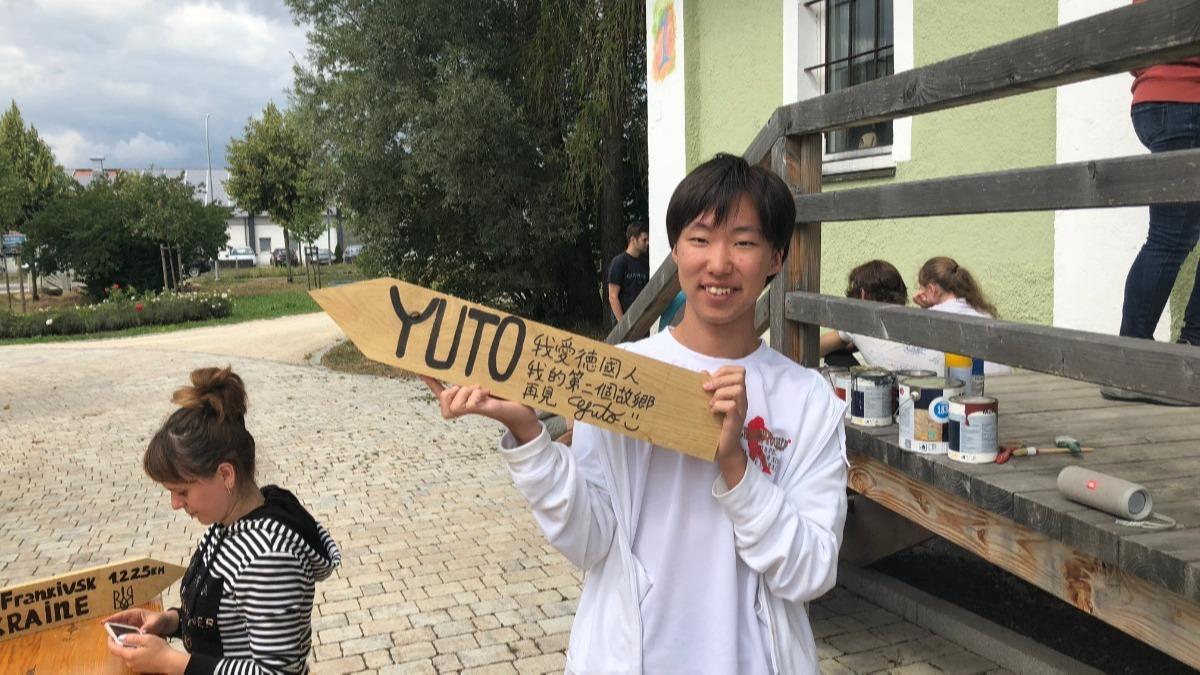 YUTO
我愛德國人
我的第二個故鄉
再見 Yuto
Frankivsk 1.225KM
KRAINE